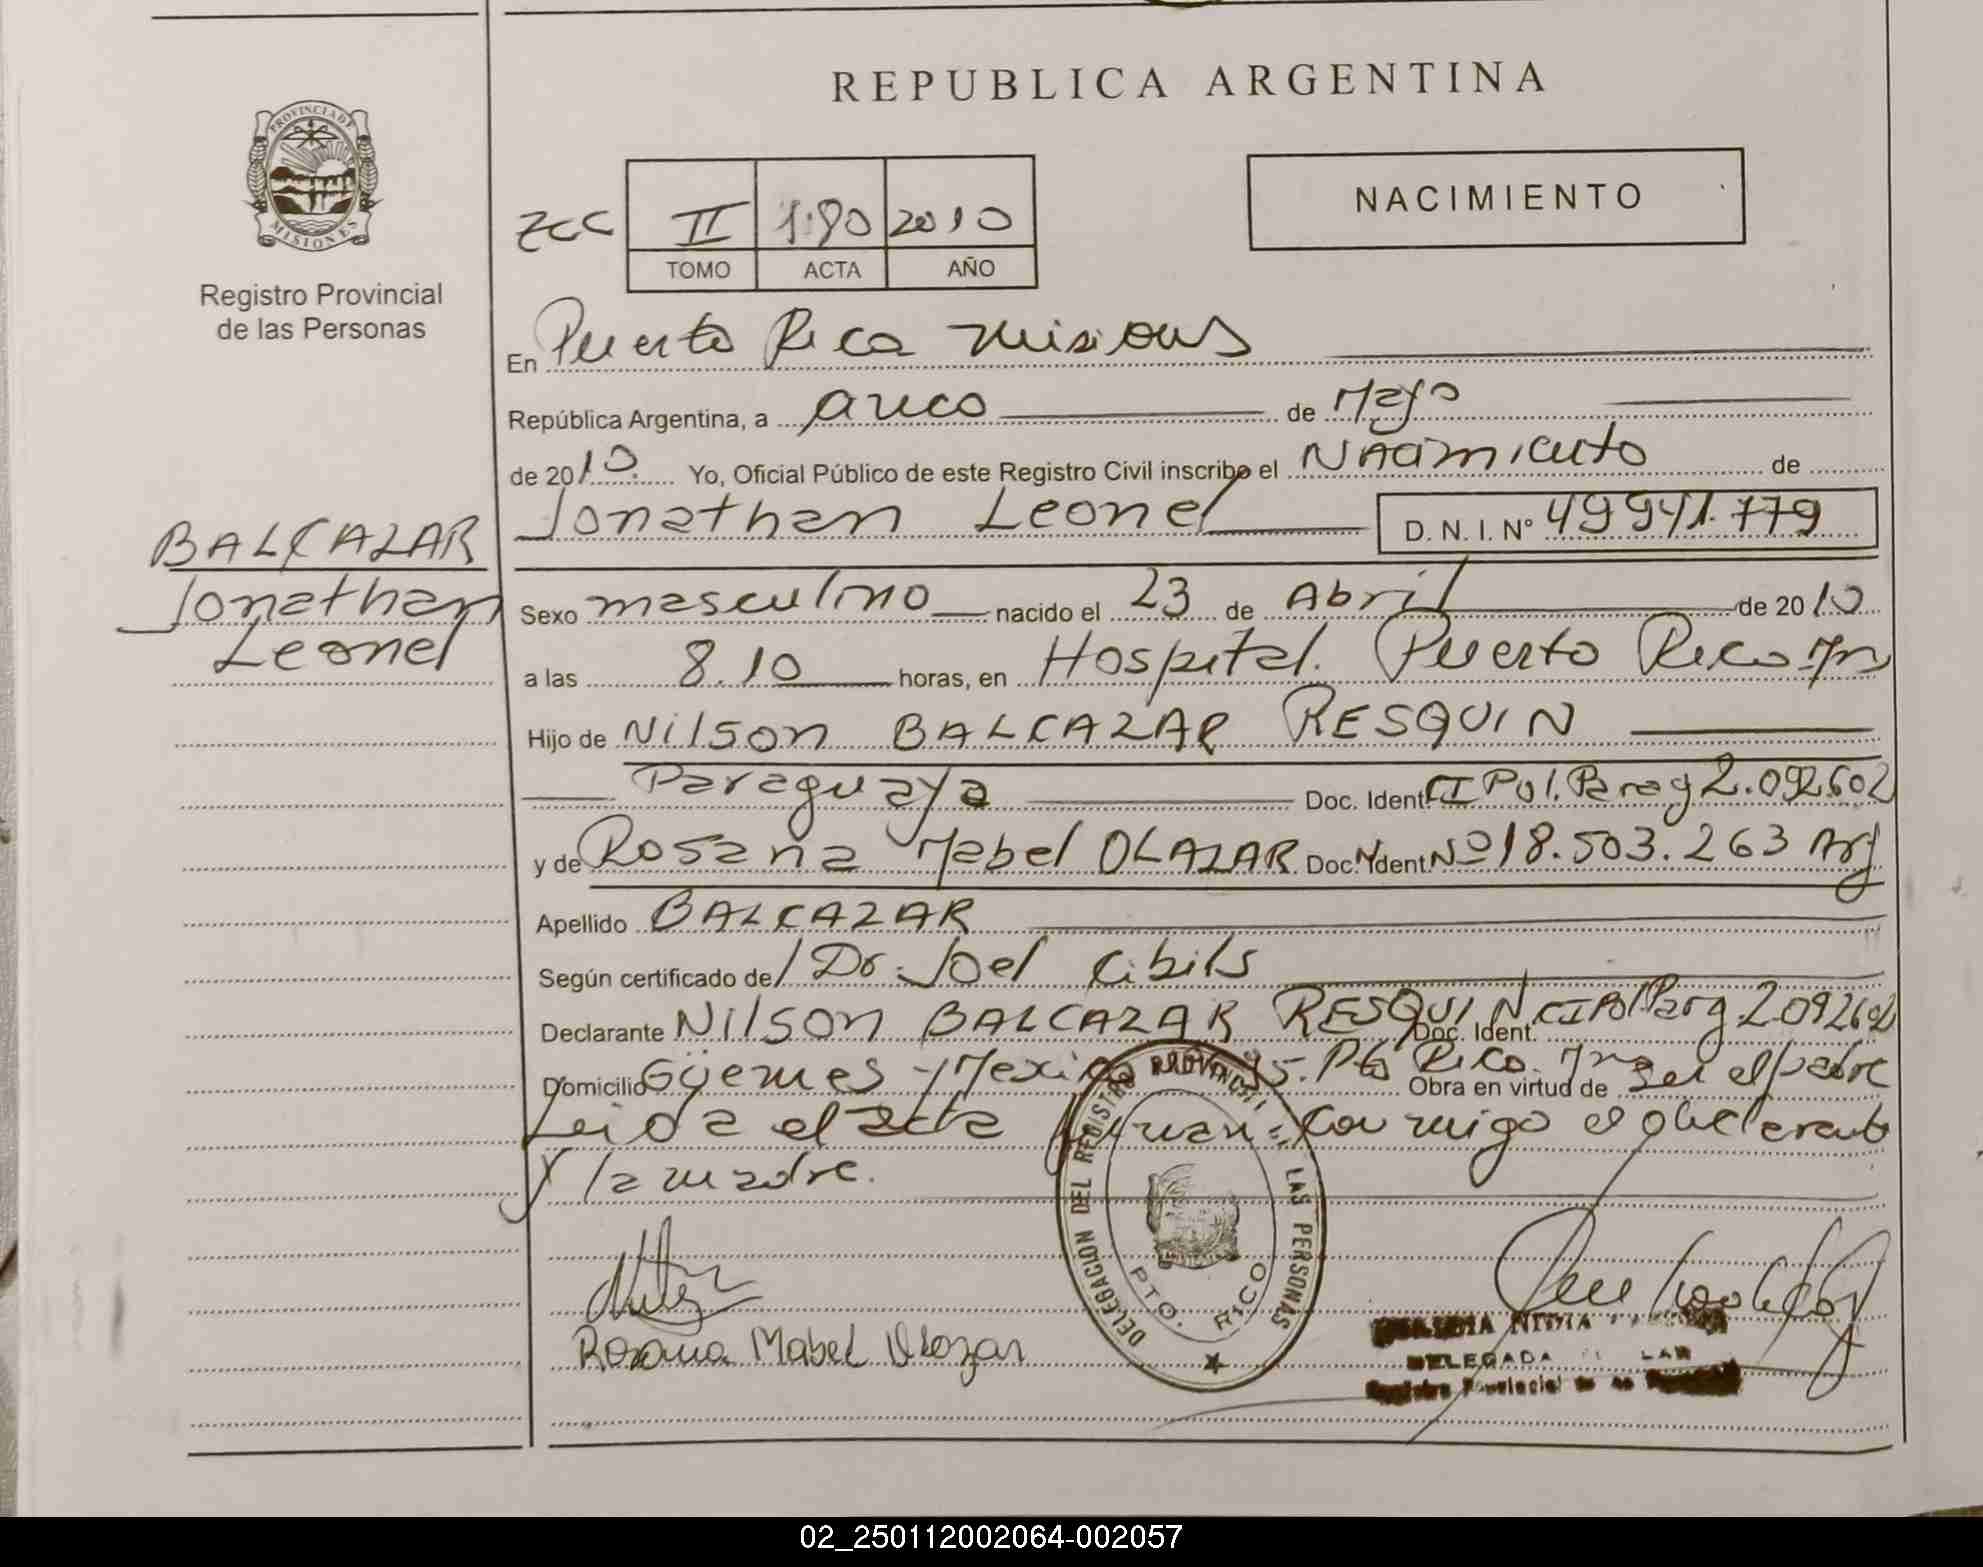 REPUBLICA ARGENTINA
PROVINCIA DE
MISIONES
Registro Provincial
de las Personas
NACIMIENTO
II 190 2010
TOMO ACTA AÑO
En Puerto Rico Misiones
República Argentina, a cinco de Mayo
de 2010. Yo, Oficial Público de este Registro Civil inscribo el Nacimiento de
Jonathan Leonel D. N. I. Nº 49941.779
BALCAZAR
Jonathan
Leonel
Sexo masculino nacido el 23 de Abril de 2010
a las 8.10 horas, en Hospital. Puerto Rico Mns
Hijo de Nilson BALCAZAR RESQUIN
Paraguaya Doc. Ident. CI Pol. Parag 2.092.602
y de Rosana Mabel OLAZAR Doc. Ident. Nº 18.503.263 Arg
Apellido BALCAZAR
Según certificado de Dr. Joel Cibils
Declarante Nilson BALCAZAR RESQUIN Doc. Ident. CI Pol Parg 2092602
Domicilio Güemes y Mexico Pto Rico. Mns Obra en virtud de ser el padre
Leida el acta firman conmigo el declarante
y la madre.
DELEGACION DEL REGISTRO PROVINCIAL DE LAS PERSONAS
PTO. RICO
Rosana Mabel Olazar
DELEGADA
Registro Provincial de las
02_250112002064-002057